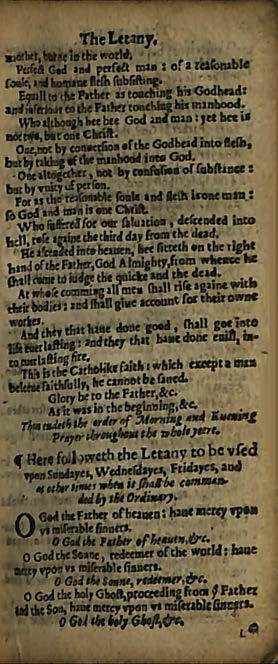 The Letany.
mother, borne in the world.
Perfect God and perfect man : of a reasonable
soule, and humane flesh subsisting.
Equall to the Father as touching his Godhead:
and inferiour to the Father touching his manhood.
Who although hee bee God and man : yet hee is
not two, but one Christ.
One, not by conuersion of the Godhead into flesh,
but by taking of the manhood into God.
One altogether, not by confusion of substance :
but by vnity of person.
For as the reasonable soule and flesh is one man :
so God and man is one Christ.
Who suffered for our saluation, descended into
hell, rose againe the third day from the dead.
He ascended into heauen, hee sitteth on the right
hand of the Father, God Almighty, from whence he
shall come to iudge the quicke and the dead.
At whose comming all men shall rise againe with
their bodies : and shall giue account for their owne
workes.
And they that haue done good, shall goe into
life euerlasting : and they that haue done euill, in-
to euerlasting fire.
This is the Catholike faith : which except a man
beleeue faithfully, he cannot be saued.
Glory be to the Father, &c.
As it was in the beginning, &c.
Thus endeth the order of Morning and Euening
Prayer throughout the whole yeere.
¶ Here followeth the Letany to be vsed
vpon Sundayes, Wednesdayes, Fridayes, and
at other times when it shall be comman-
ded by the Ordinary.
O God the Father of heauen : haue mercy vpon
vs miserable sinners.
O God the Father of heauen, &c.
O God the Sonne, redeemer of the world : haue
mercy vpon vs miserable sinners.
O God the Sonne, redeemer, &c.
O God the holy Ghost, proceeding from yͤ Father
and the Son, haue mercy vpon vs miserable sinners.
O God the holy Ghost, &c.